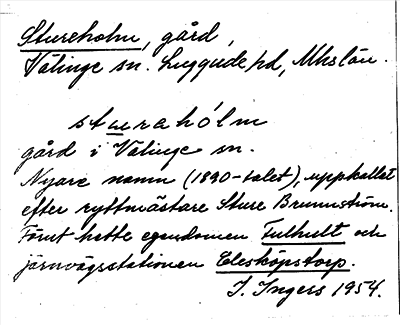 Stureholm, gård,
Välinge sn. Luggude hd, Mhs län.
stuːrahólm
gård i Välinge sn.
Nyare namn (1890-talet), uppkallat
efter ryttmästare Sture Brunnström.
Förut hette egendomen Tulhult och
järnvägsstationen Clesköpstorp.
I. Ingers 1954.